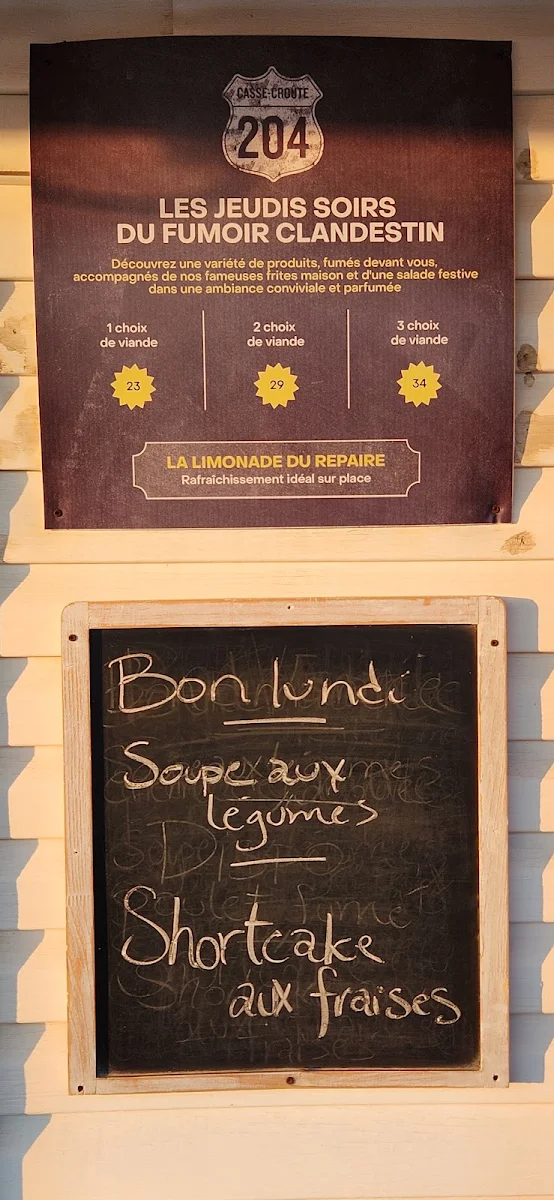 CASSE-CROÛTE
204
LES JEUDIS SOIRS
DU FUMOIR CLANDESTIN
Découvrez une variété de produits, fumés devant vous,
accompagnés de nos fameuses frites maison et d'une salade festive
dans une ambiance conviviale et parfumée
1 choix
de viande
23
2 choix
de viande
29
3 choix
de viande
34
LA LIMONADE DU REPAIRE
Rafraîchissement idéal sur place
Bon lundi
Soupe aux
légumes
Shortcake
aux fraises